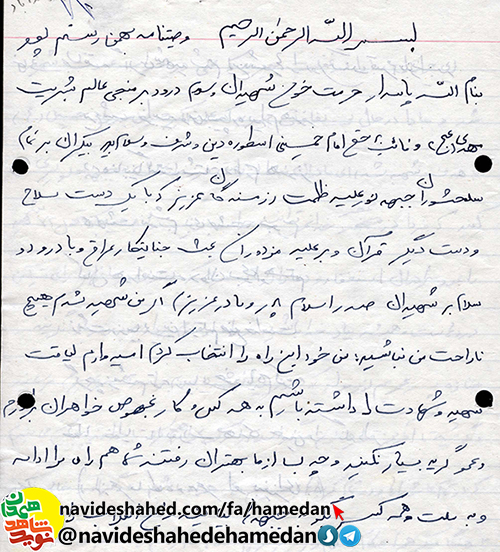 بسم اللّه الرحمن الرحیم وصیتنامه بهمن رستم پور
بنام اللّه پاسدار حرمت خون شهیدان و سلام و درود بر منجی عالم بشریت
مهدی (عج) و نائب بحقش امام خمینی اسطوره دین و شرف و سلام بیکران بر تمام
سلحشوران جبهه نور علیه ظلمت رزمندگان عزیز که با یک دست سلاح
و دست دیگر قرآن و بر علیه مزدوران بعث جنایتکار عراق و با درود
سلام بر شهیدان صدر اسلام پدر و مادر عزیزم اگر من شهید شدم هیچ
ناراحت من نباشید: من خود این راه را انتخاب کردم امیدوارم لیاقت
شهید و شهادت را داشته باشم به همه کس و کار بخصوص خواهران برادرم
و عمو گریه بسیار نکنید و چه بسا از ما بهتران رفتند شما هم راه مرا ادامه
و به ملت و همه
navideshahed.com/fa/hamedan
@navideshahedehamedan
نوید شاهد همدان